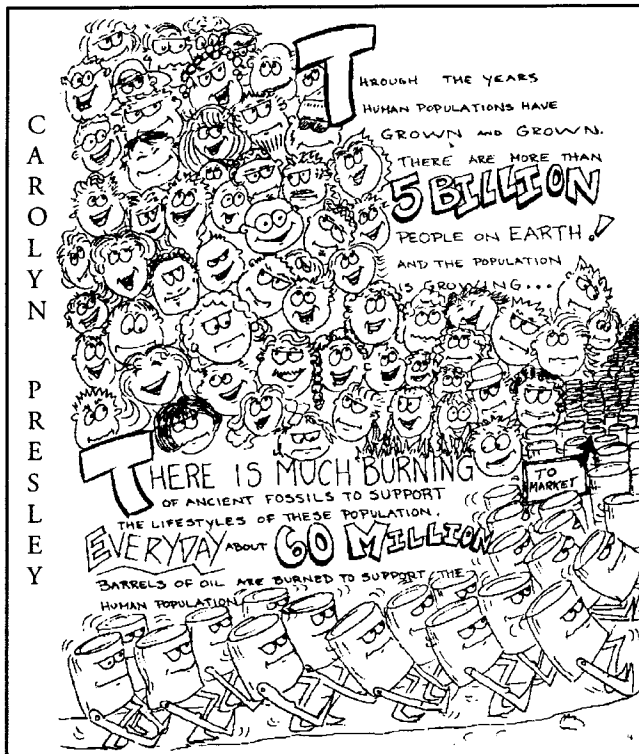 CAROLYN PRESLEY
THROUGH THE YEARS
HUMAN POPULATIONS HAVE
GROWN AND GROWN.
THERE ARE MORE THAN
5 BILLION
PEOPLE ON EARTH!
AND THE POPULATION
IS GROWING...
THERE IS MUCH BURNING
OF ANCIENT FOSSILS TO SUPPORT
THE LIFESTYLES OF THESE POPULATION.
EVERYDAY ABOUT 60 MILLION
BARRELS OF OIL ARE BURNED TO SUPPORT THE
HUMAN POPULATION
TO
MARKET